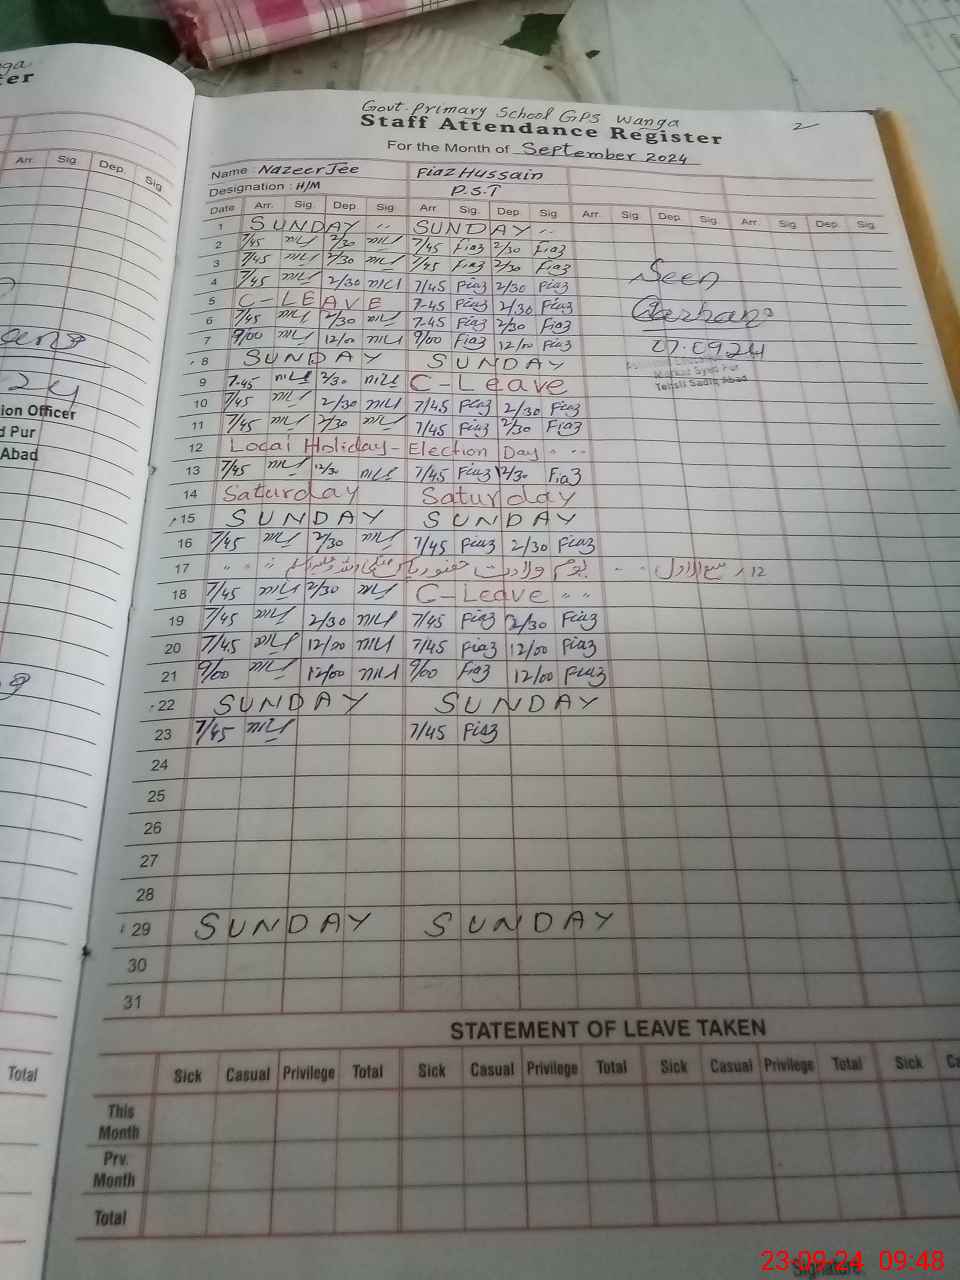 Govt. Primary School GPS Wanga
Staff Attendance Register
2
For the Month of September 2024
Name : Nazeer Jee Fiaz Hussain
Designation : H/M P.S.T
Date Arr. Sig. Dep. Sig. Arr. Sig. Dep. Sig Arr. Sig. Dep. Sig. Arr. Sig Dep. Sig.
1 SUNDAY " SUNDAY "
2 7/45 2/30 7/45 Fiaz 2/30 Fiaz
3 7/45 2/30 7/45 Fiaz 2/30 Fiaz
4 7/45 2/30 7/45 Fiaz 2/30 Fiaz
5 C-LEAVE 7-45 Fiaz 2/30 Fiaz
6 7/45 2/30 7-45 Fiaz 2/30 Fiaz
7 9/00 12/00 9/00 Fiaz 12/00 Fiaz
8 SUNDAY SUNDAY
9 7-45 2/30 C-Leave
10 7/45 2/30 7/45 Fiaz 2/30 Fiaz
11 7/45 2/30 7/45 Fiaz 2/30 Fiaz
12 Local Holiday - Election Day " "
13 7/45 12/30 7/45 Fiaz 12/30 Fiaz
14 Saturday Saturday
15 SUNDAY SUNDAY
16 7/45 2/30 7/45 Fiaz 2/30 Fiaz
17 12 ربیع الاول یوم ولادت حضور پاک صلی اللہ علیہ وسلم
18 7/45 2/30 C-Leave " "
19 7/45 2/30 7/45 Fiaz 2/30 Fiaz
20 7/45 12/00 7/45 Fiaz 12/00 Fiaz
21 9/00 12/00 9/00 Fiaz 12/00 Fiaz
22 SUNDAY SUNDAY
23 7/45 7/45 Fiaz
24
25
26
27
28
29 SUNDAY SUNDAY
30
31
Seen
07.0924
Markaz Syed Pur
Tehsil Sadiq Abad
STATEMENT OF LEAVE TAKEN
Sick Casual Privilege Total Sick Casual Privilege Total Sick Casual Privilege Total Sick Ca
This Month
Prv. Month
Total
Signature
ter
Arr. Sig. Dep. Sig.
24
ion Officer
d Pur
Abad
Total
23-09-24 09:48